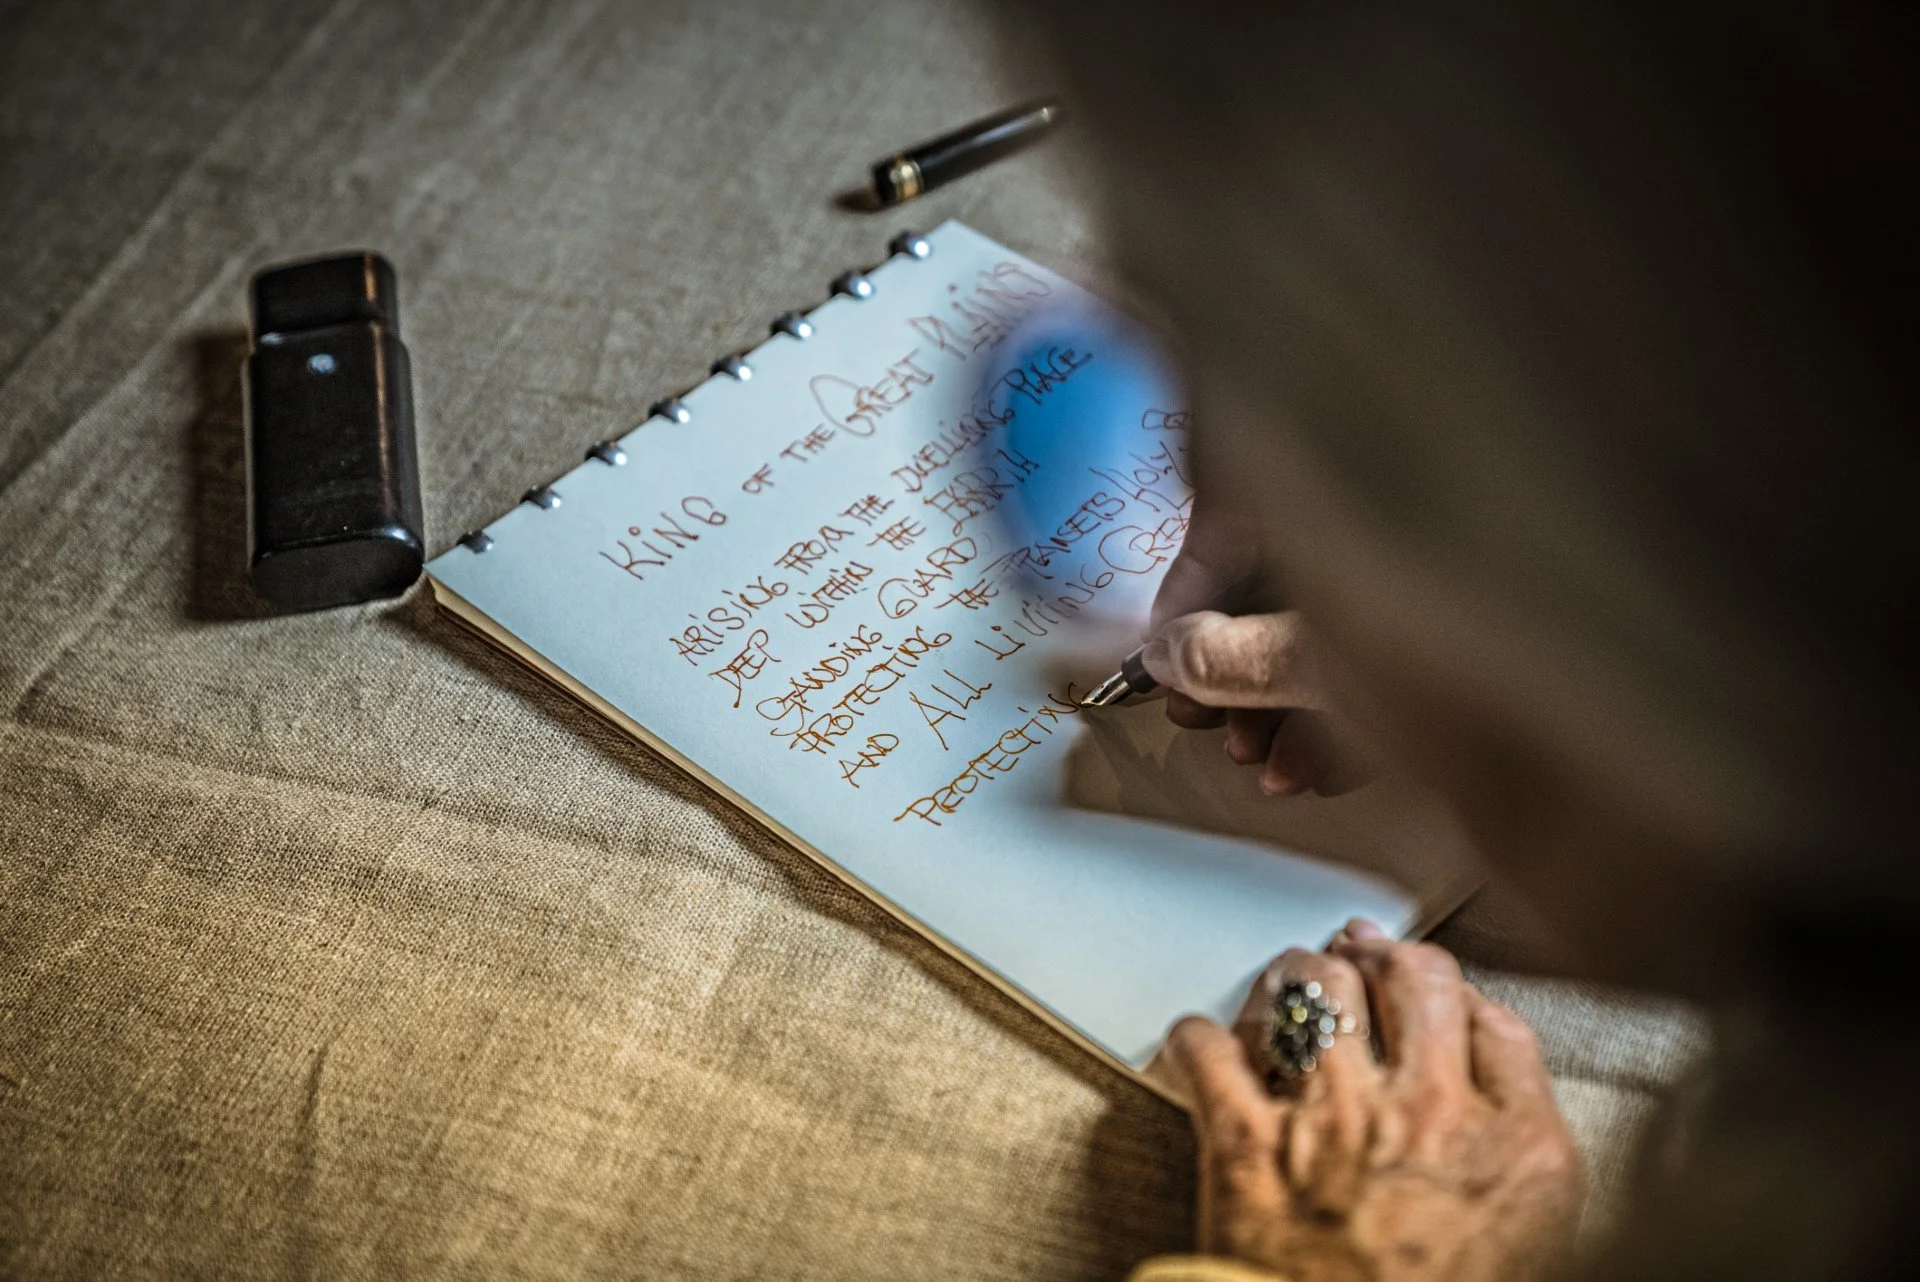 KiNG OF THE GREAT PLAiNS
ARiSiNG FROM THE DWELLiNG PLACE
DEEP WiTHiN THE EARTH
STANDiNG GUARD
PROTECTiNG THE PLANETS HOLY
AND ALL LiViNG CREA
PROTECTiNG